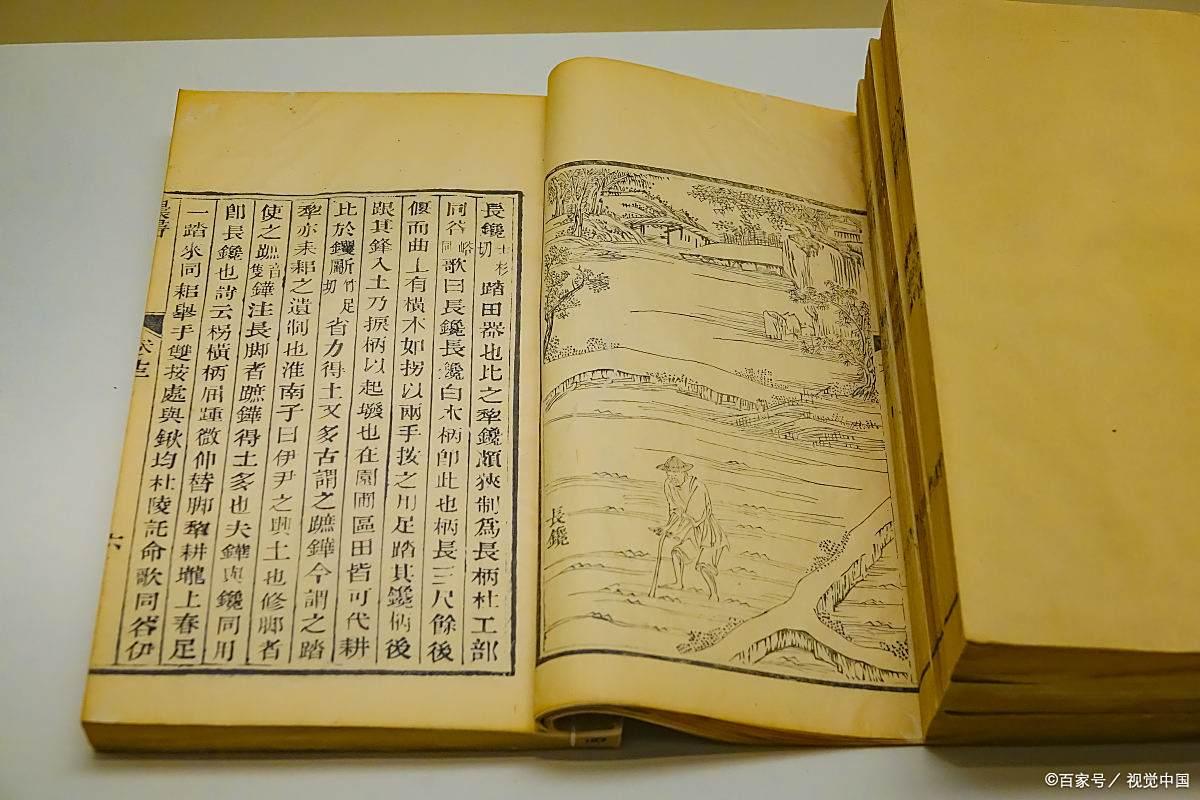 長鑱
長鑱士杉切踏田器也比之犁鑱頗狹制爲長柄杜工部
同谷歌曰長鑱長鑱白木柄卽此也柄長三尺餘後
偃而曲上有橫木如拐以兩手按之用足踏其鑱柄後
跟其鋒入土乃捩柄以起墢也在園圃區田皆可代耕
比於钁劚竹足切省力得土又多古謂之蹠鏵今謂之踏
犂亦耒耜之遺制也淮南子曰伊尹之興土也修脚者
使之蹠音隻鏵注長脚者蹠鏵得土多也夫鏵與鑱同用
卽長鑱也詩云柺橫柄屈踵微伸替脚犂耕壠上春足
一踏來同耜舉手雙按處與鍬均杜陵託命歌同谷伊
六
©百家号/视觉中国